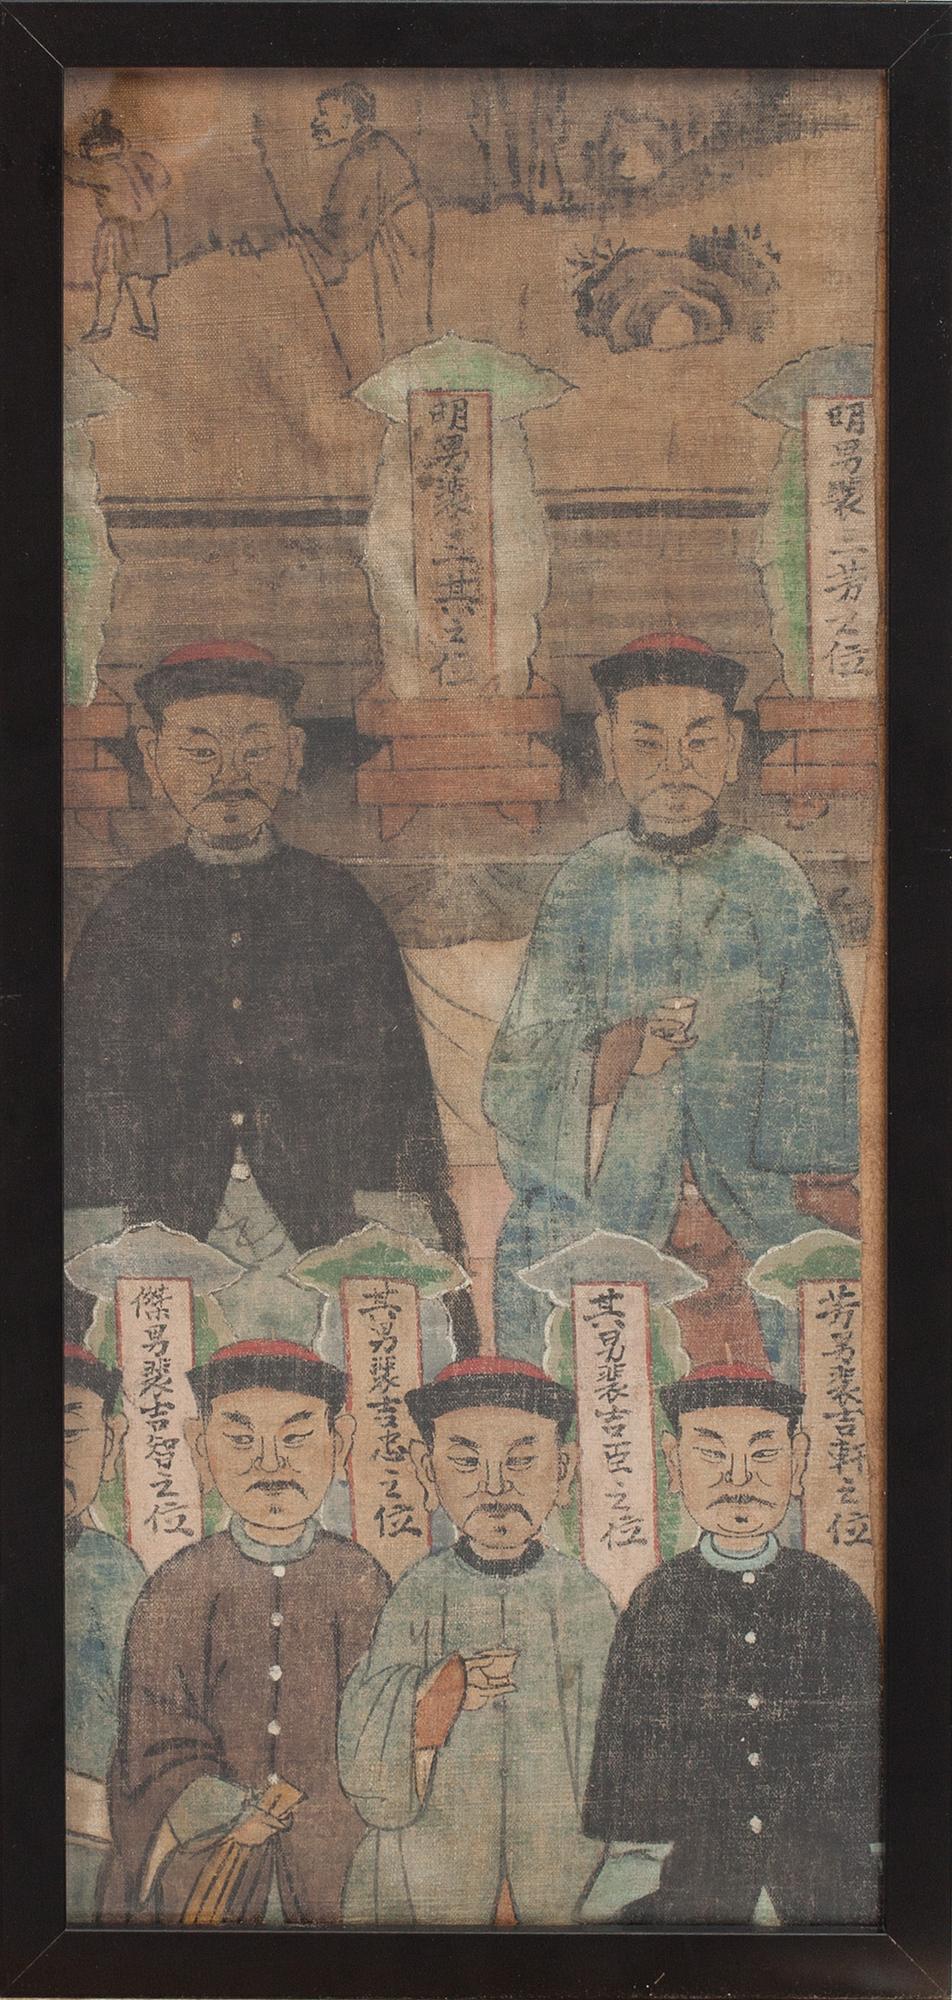 明男裴三芳之位
明男裴三其之位
芳男裴吉軒之位
其男裴吉臣之位
其男裴吉忠之位
傑男裴吉智之位